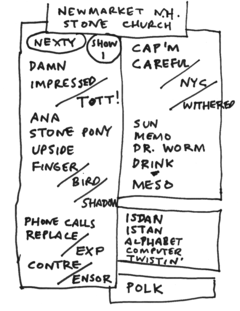 NEWMARKET N.H.
STONE CHURCH
NEXTY
SHOW
1
DAMN
IMPRESSED/
TOTT!
ANA
STONE PONY
UPSIDE
FINGER/
BIRD/
SHADOW
PHONE CALLS
REPLACE/
EXP
CONTRE/
ENSOR
CAP'M
CAREFUL/
NYC/
WITHERED
SUN
MEMO
DR. WORM
DRINK
MESO
ISDAN
ISTAN
ALPHABET
COMPUTER
TWISTIN'
POLK